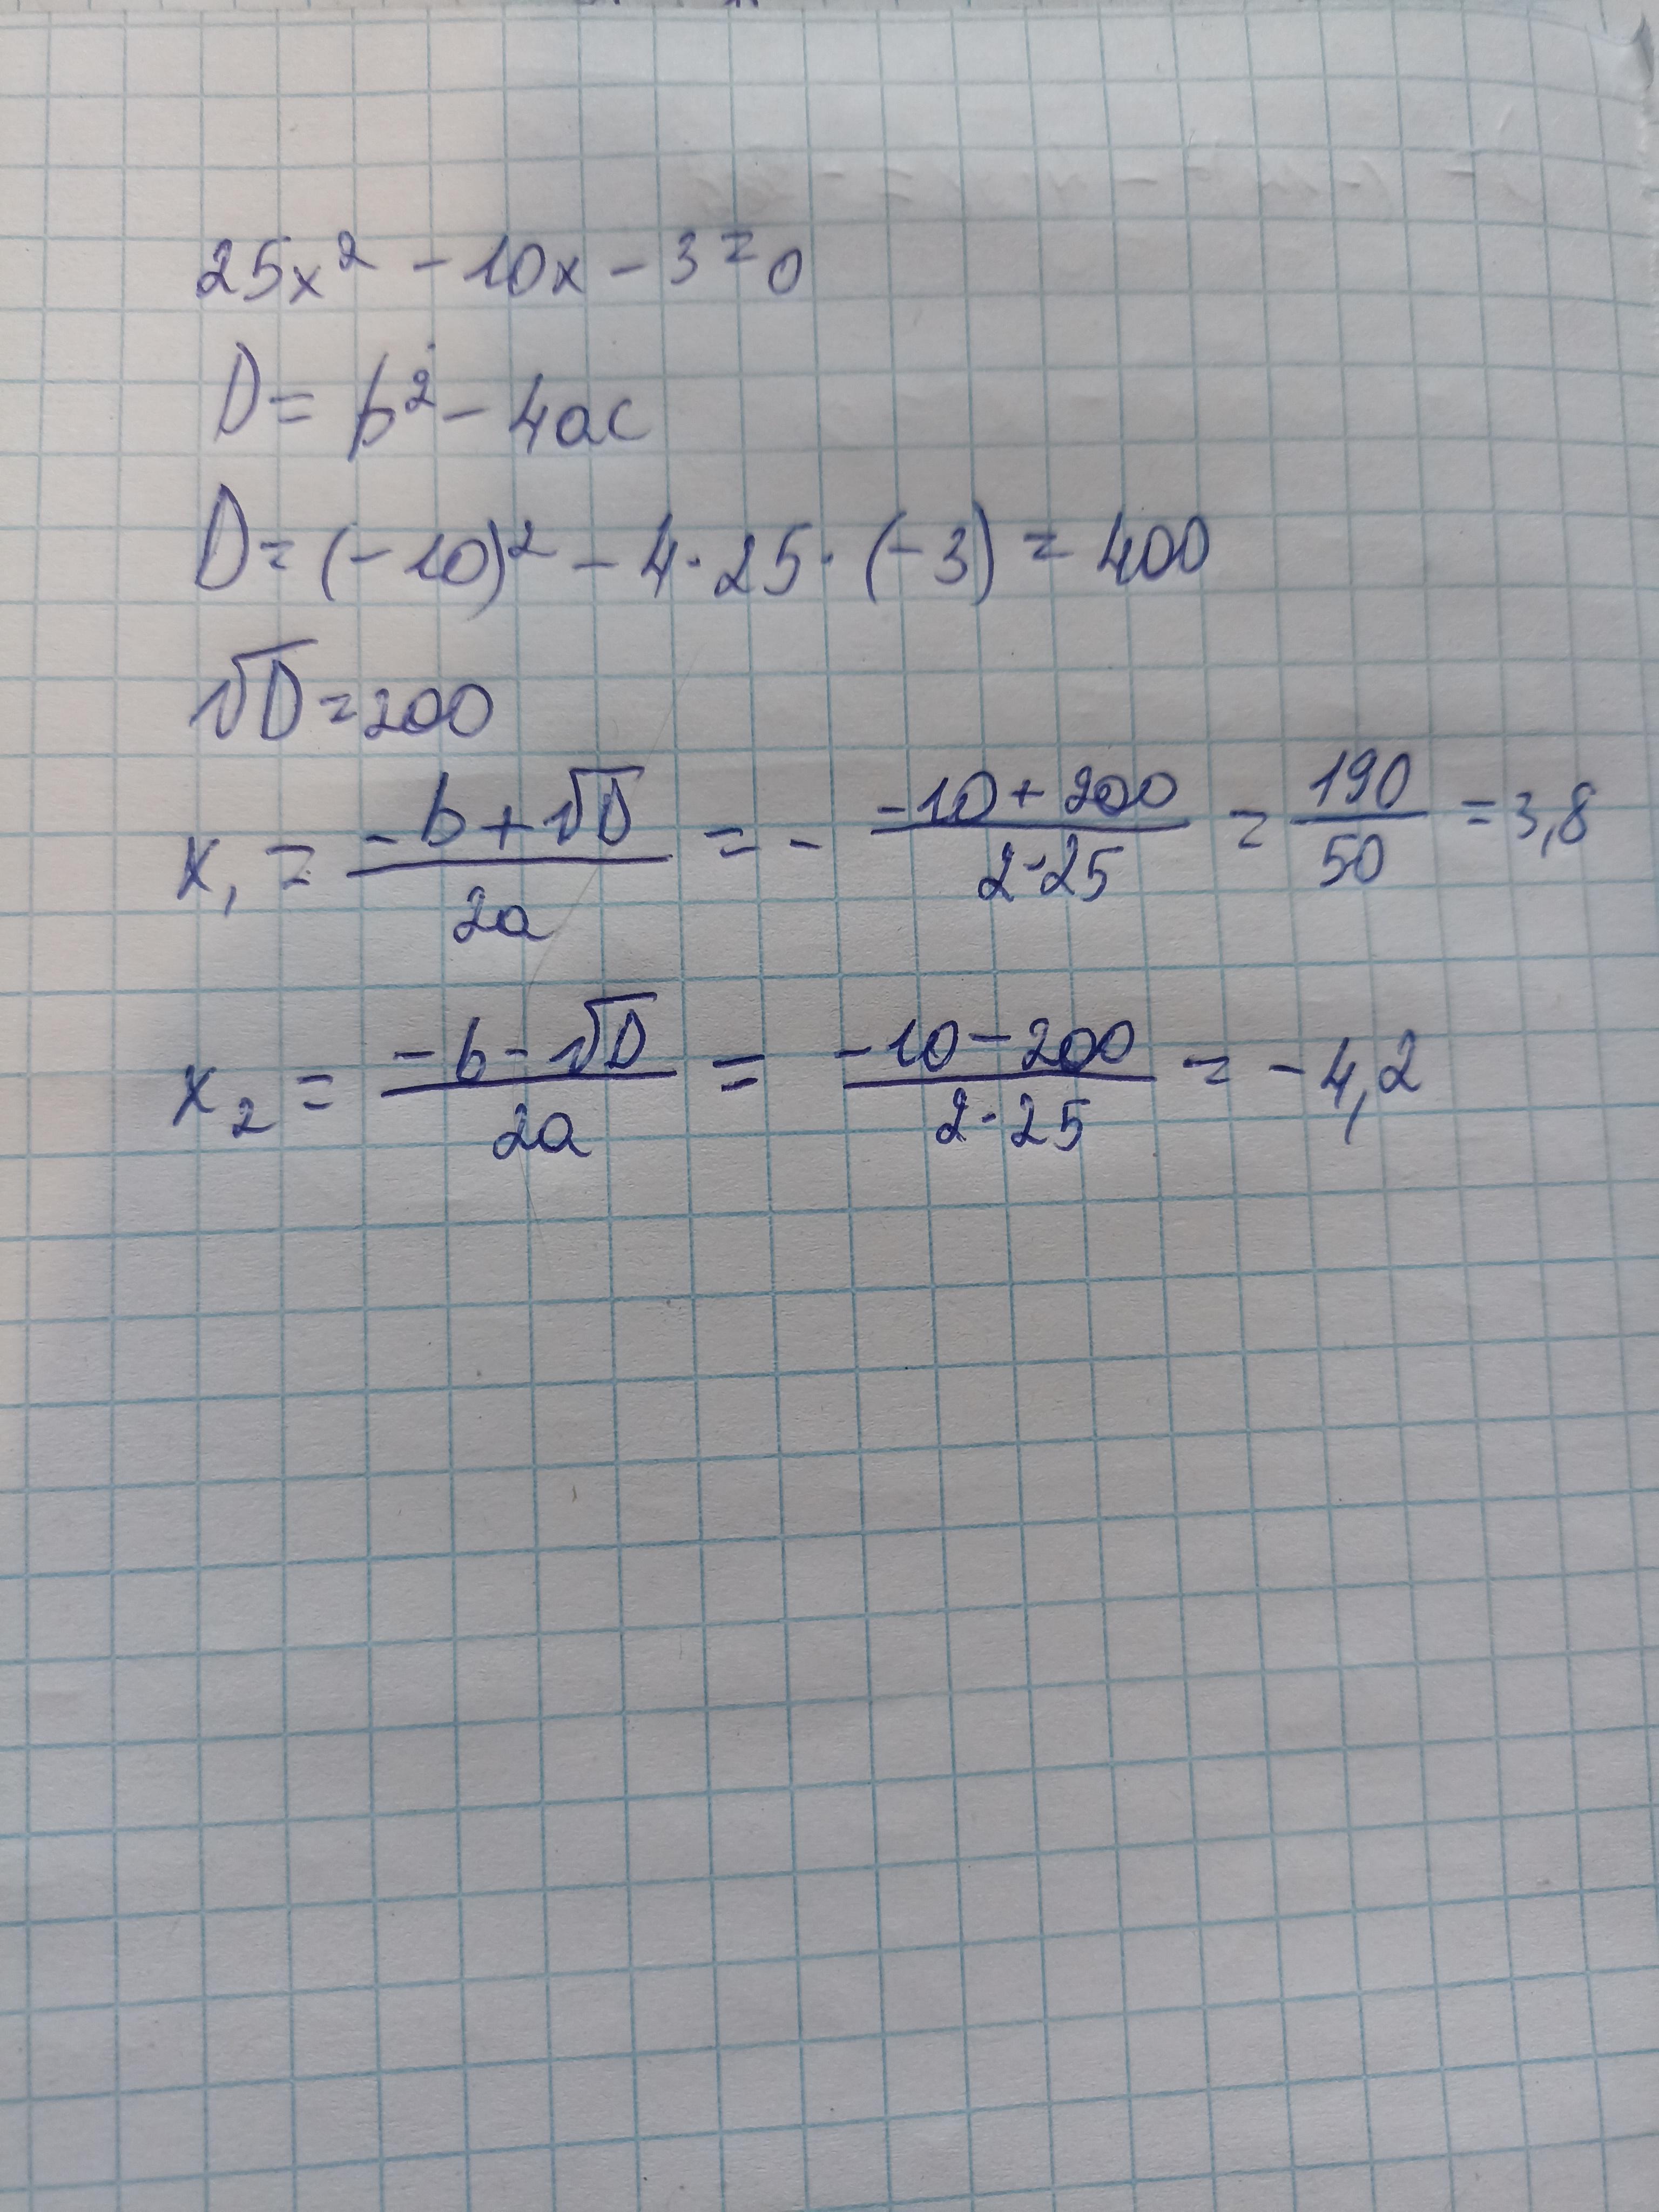 25x² - 10x - 3 = 0
D = b² - 4ac
D = (-10)² - 4·25·(-3) = 400
√D = 200
x₁ = (-b + √D)/(2a) = - (-10 + 200)/(2·25) = 190/50 = 3,8
x₂ = (-b - √D)/(2a) = (-10 - 200)/(2·25) = -4,2